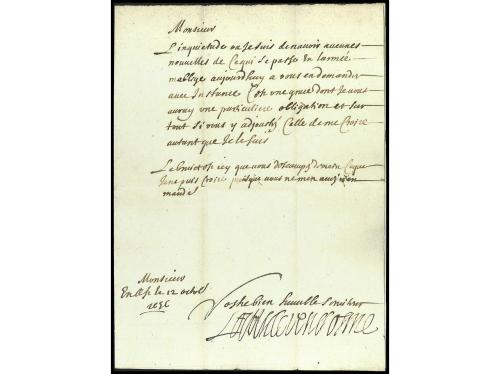 Monsieur
L'inquietude ou Je suis de n'avoir aucunes
nouvelles de Ce qui se passe En l'armée
m'oblige aujourdhuy a vous en demander
avec Instance C'est une grace dont Je vous
auray une particuliere obligation et sur
tout si vous y adjoustez Celle de me Croire
autant que Je le suis
Le bruict est icy que vous descampez demain Ce que
Je ne puis Croire puisque vous ne m'en avez rien
mandé
Monsieur
le 12
Vostre bien humble serviteur